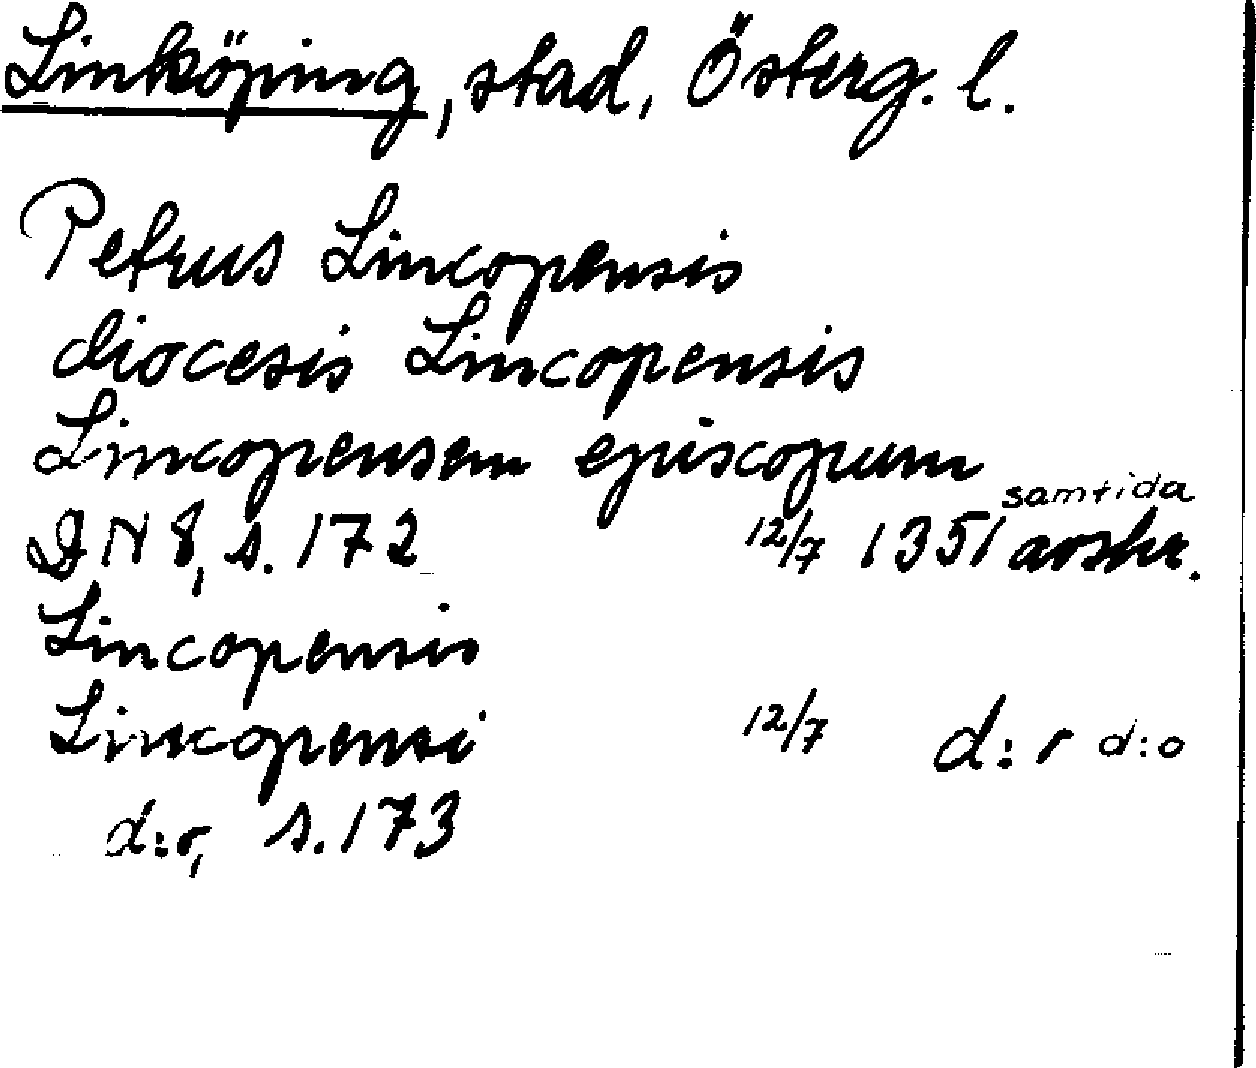 Linköping, stad, Österg. l.
Petrus Lincopensis
diocesis Lincopensis
Lincopensem episcopum
DN 8, s. 172 12/7 1351 samtida avskr.
Lincopensis
Lincopensi 12/7 d:r d:o
d:r, s. 173